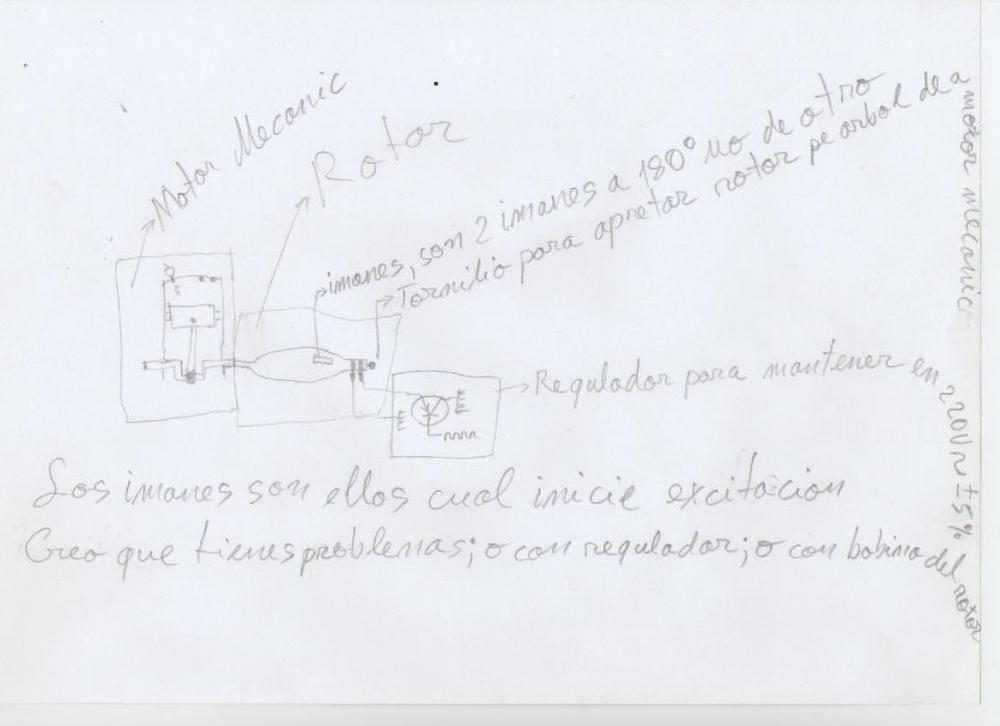 Motor Mecanic
Rotor
imanes, son 2 imanes a 180° uo de otro
Tornilio para apretar rotor pe arbol de a motor mecanic
Regulador para mantener en 220V~ ±5%
Los imanes son ellos cual inicie excitacion
Creo que tienes problemas; o con regulador; o con bobina del rotor